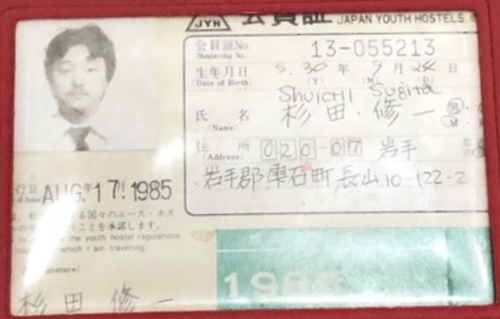 JYH 会員証 JAPAN YOUTH HOSTELS,
会員証No. 13-055213
Membership No.
生年月日 S.30年 9月 24日
(Date of Birth) (Y) (M) (D)
Shuichi Sugita
氏名 杉田 修一 男
(Name) M
住所 020-07 岩手
(Address)
岩手郡雫石町長山10-122-2
行日 AUG. 17 1985
年 月
of Issue
私
る国々のユース・ホス
ことを承諾します。
the youth hostel regulations
which I am traveling.
ignature)
1985
杉田 修一